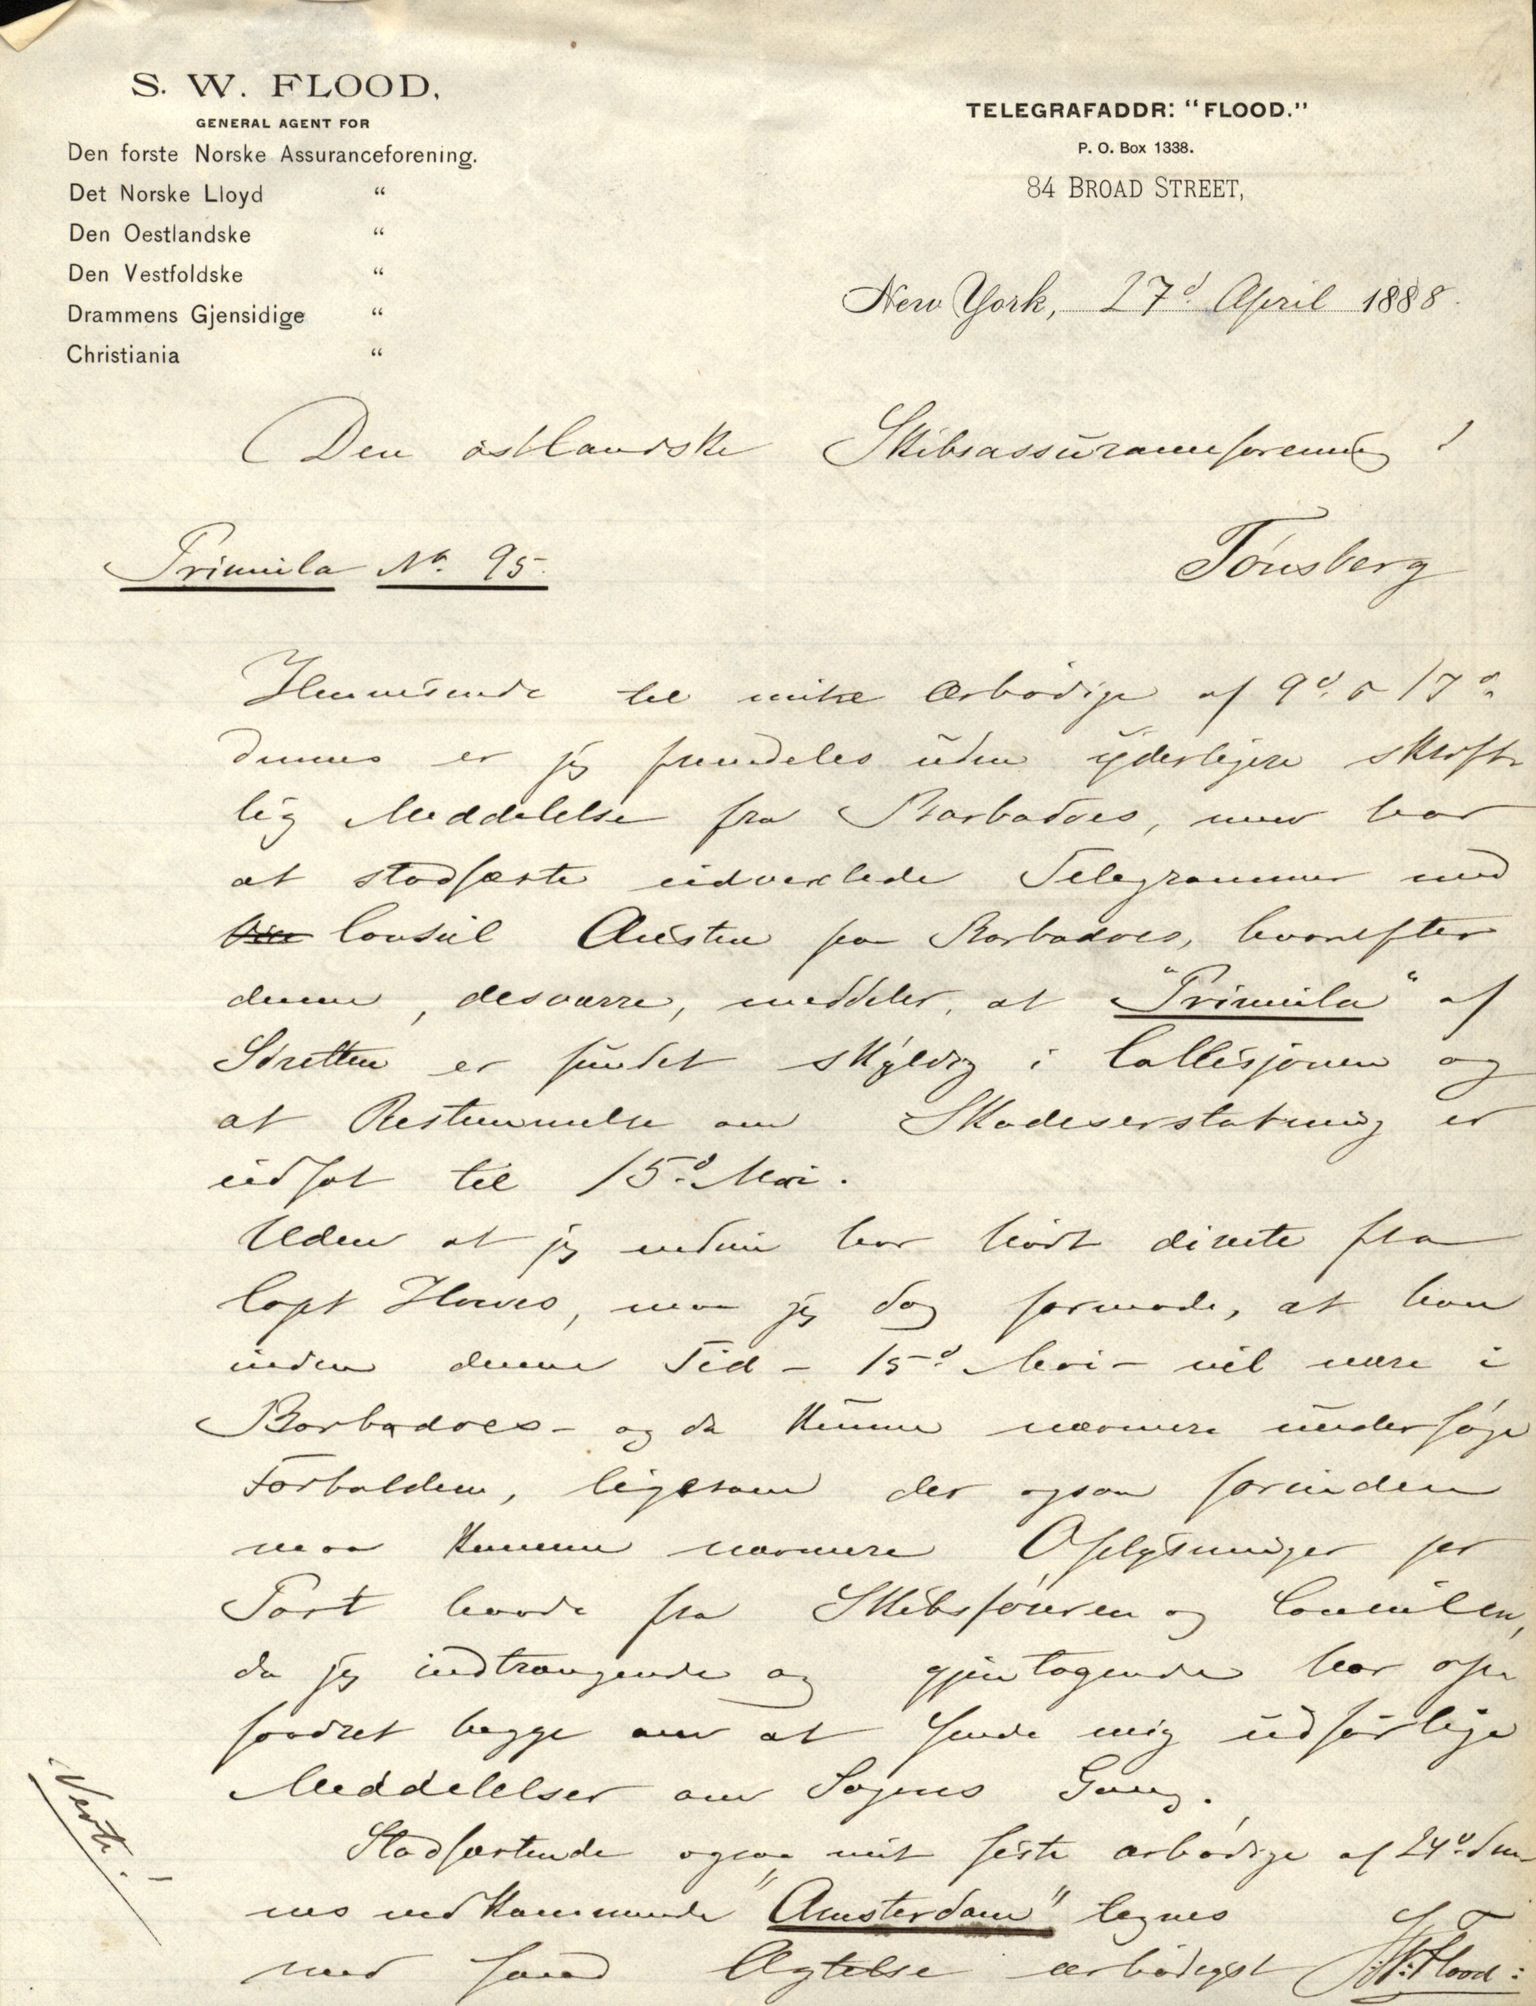 S. W. FLOOD,
GENERAL AGENT FOR
Den forste Norske Assuranceforening.
Det Norske Lloyd "
Den Oestlandske "
Den Vestfoldske "
Drammens Gjensidige "
Christiania "
TELEGRAFADDR: "FLOOD."
P. O. Box 1338.
84 BROAD STREET,
New York, 27d April 1888.
Den østlandske Skibsassuranceforening!
Primula No. 95.
Tønsberg
Henvisende til mine ærbødige af 9d. & 17d.
dennes er jeg fremdeles uden yderligere skrift-
lig Meddelelse fra Barbadoes, men har
at stadfæste udvexlede Telegrammer med
Consul Austin paa Barbadoes, hvorefter
denne, desværre, meddeler, at "Primula" af
Søretten er fundet skyldig i Collisjonen og
at Bestemmelse om Skadeserstatning er
udsat til 15d. Mai.
Uden at jeg endnu har hørt direkte fra
Capt Howes, maa jeg dog formode, at han
inden denne Tid - 15d. Mai - vil være i
Barbadoes - og da kunne nærmere undersøge
Forholdene, ligesom der ogsaa forinden
maa komme nærmere Oplysninger per
Post baade fra Skibsføreren og Consulen,
da jeg indtrængende og gjentagende har op-
fordret begge om at sende mig udførlige
Meddelelser om Sagens Gang.
Stadfæstende ogsaa mit sidste ærbødige af 24d. den-
nes vedkommende "Amsterdam" tegnes
med sand Agtelse ærbødigst S. W. Flood:
Verte!